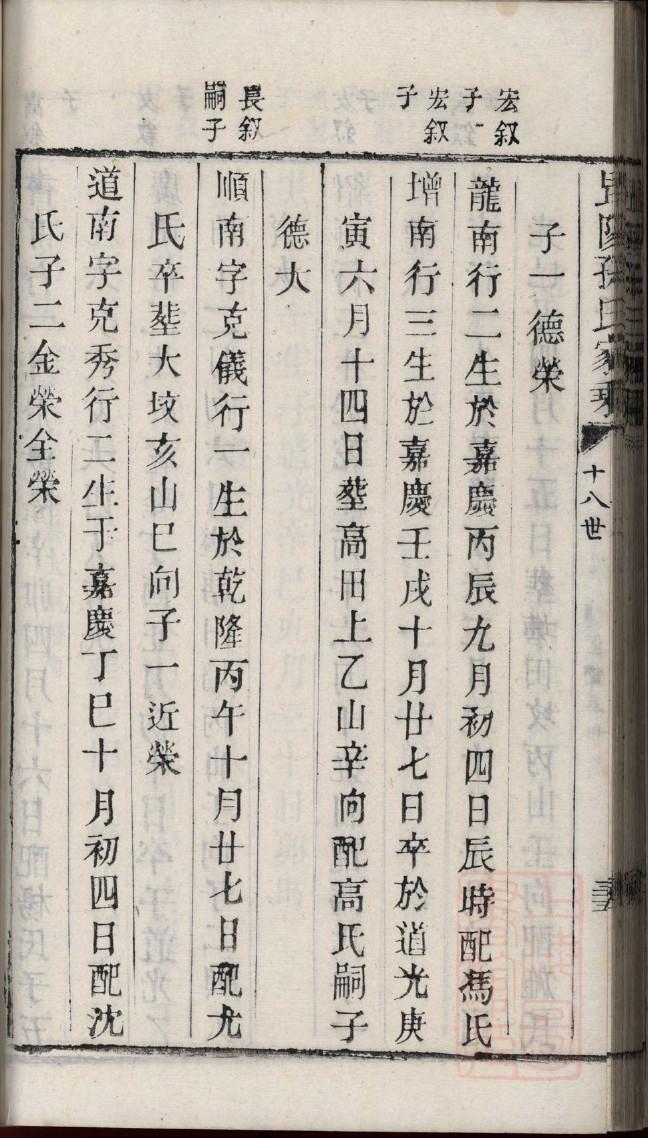 暨陽孫氏家乘
十八世
子一德榮
宏叙子一
龍南行二生於嘉慶丙辰九月初四日辰時配馮氏
宏叙子
增南行三生於嘉慶壬戌十月廿七日卒於道光庚
寅六月十四日塟高田上乙山辛向配高氏嗣子
德大
長叙嗣子
順南字克儀行一生於乾隆丙午十月廿七日配尤
氏卒塟大坟亥山巳向子一近榮
道南字克秀行二生于嘉慶丁巳十月初四日配沈
氏子二金榮全榮